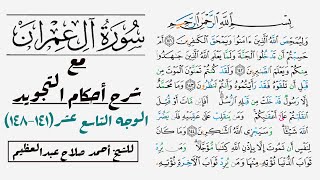 سورة آل عمران
مع
شرح أحكام التجويد
الوجه التاسع عشر (١٤١-١٤٨)
للشيخ أحمد صلاح عبدالعظيم
بسم الله الرحمن الرحيم
وليمحص الله الذين ءامنوا ويمحق الكفرين ١٤١ أم
حسبتم أن تدخلوا الجنة ولما يعلم الله الذين جهدوا
منكم ويعلم الصبرين ١٤٢ ولقد كنتم تمنون الموت من
قبل أن تلقوه فقد رأيتموه وأنتم تنظرون ١٤٣ وما
محمد إلا رسول قد خلت من قبله الرسل أفإين مات
أو قتل انقلبتم على أعقبكم ومن ينقلب على عقبيه فلن
يضر الله شيئا وسيجزي الله الشكرين ١٤٤ وما كان
لنفس أن تموت إلا بإذن الله كتبا مؤجلا ومن يرد
ثواب الدنيا نؤته منها ومن يرد ثواب الأخرة نؤته